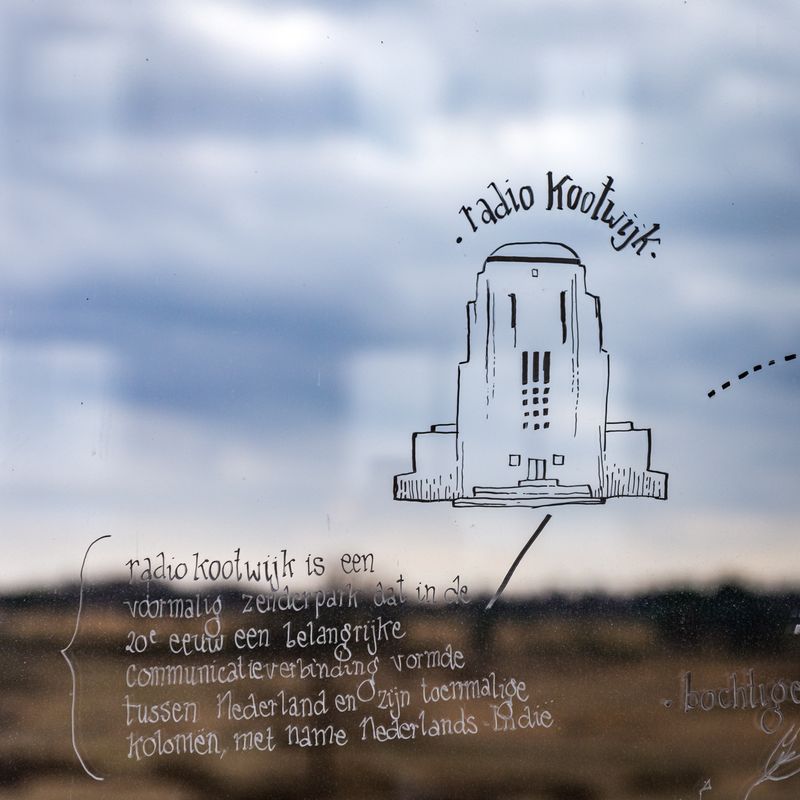 · radio Kootwijk ·
radio kootwijk is een
voormalig zenderpark dat in de
20e eeuw een belangrijke
communicatieverbinding vormde
tussen Nederland en zijn toenmalige
kolomën, met name Nederlands-Indië
· bochtige